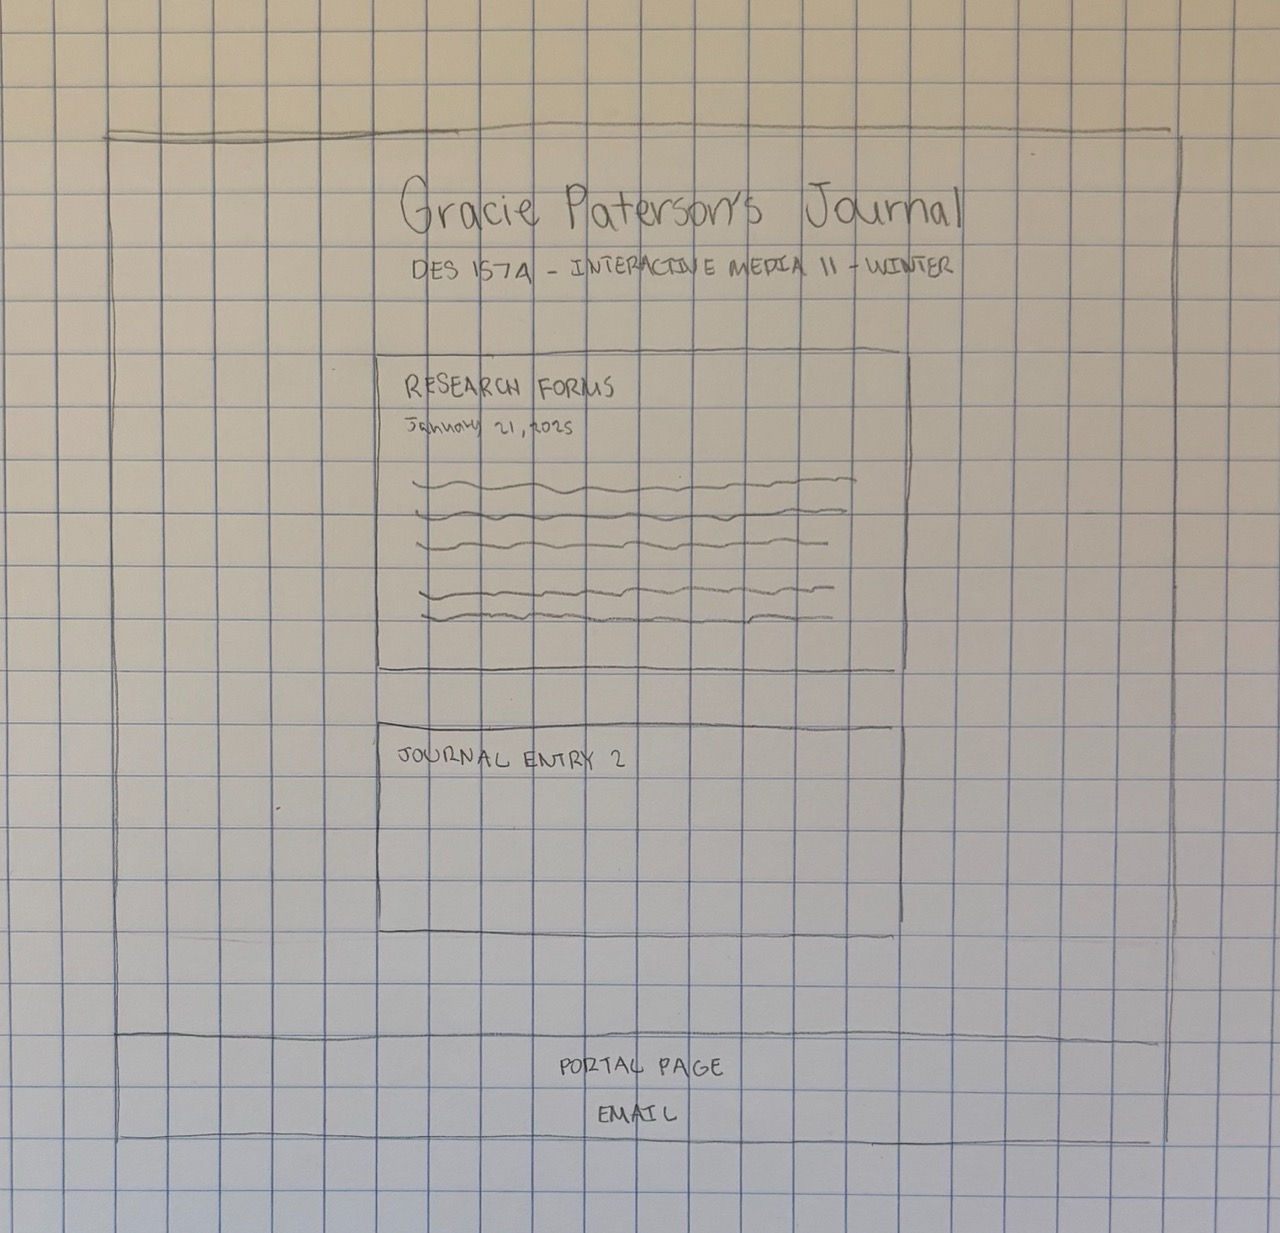 Gracie Paterson's Journal
DES 157A - INTERACTIVE MEDIA II - WINTER
RESEARCH FORMS
January 21, 2025
JOURNAL ENTRY 2
PORTAL PAGE
EMAIL